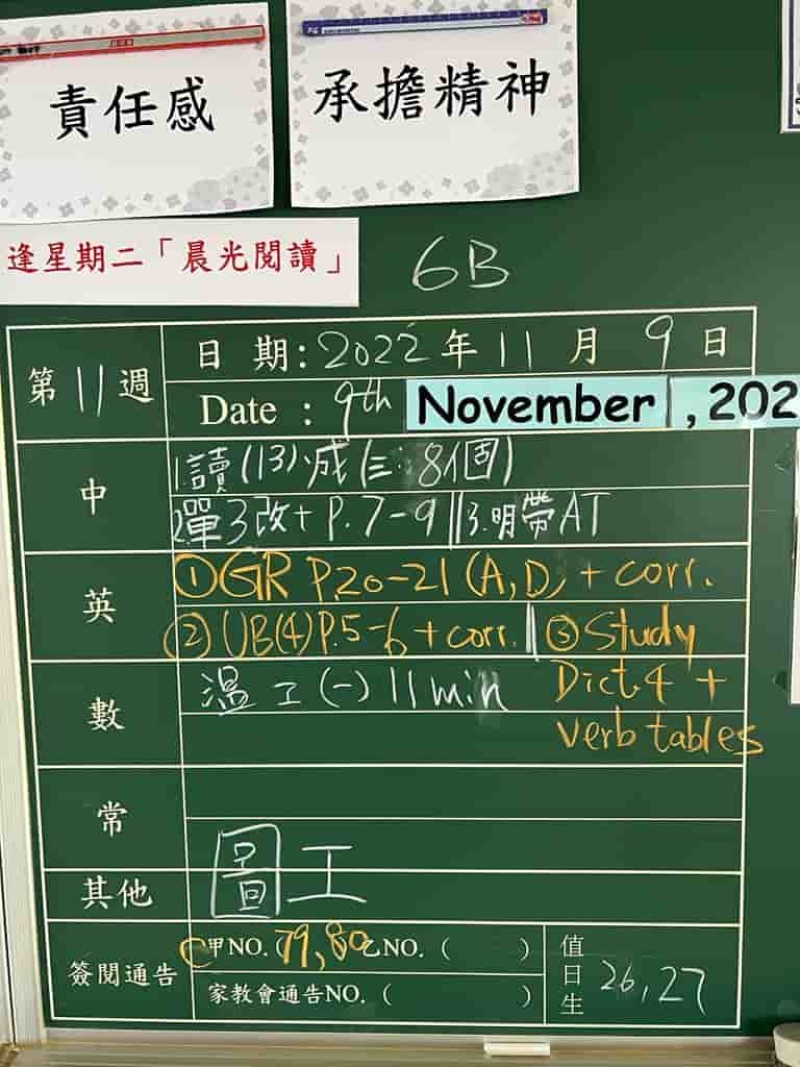 責任感
承擔精神
逢星期二「晨光閱讀」
6B
第11週
日 期:2022年11月9日
Date : 9th November , 202
中
1.讀(13)成(三:8個)
2.單3改+P.7-9 3.明帶AT
英
①GR P.20-21(A,D)+corr.
②UB(4)P.5-6+corr. ③Study
Dict.4 +
verb tables
數
溫工(一)11min
常
圖工
其他
簽閱通告
甲NO.(79,80 乙NO.( )
家教會通告NO.( )
值日生
26,27